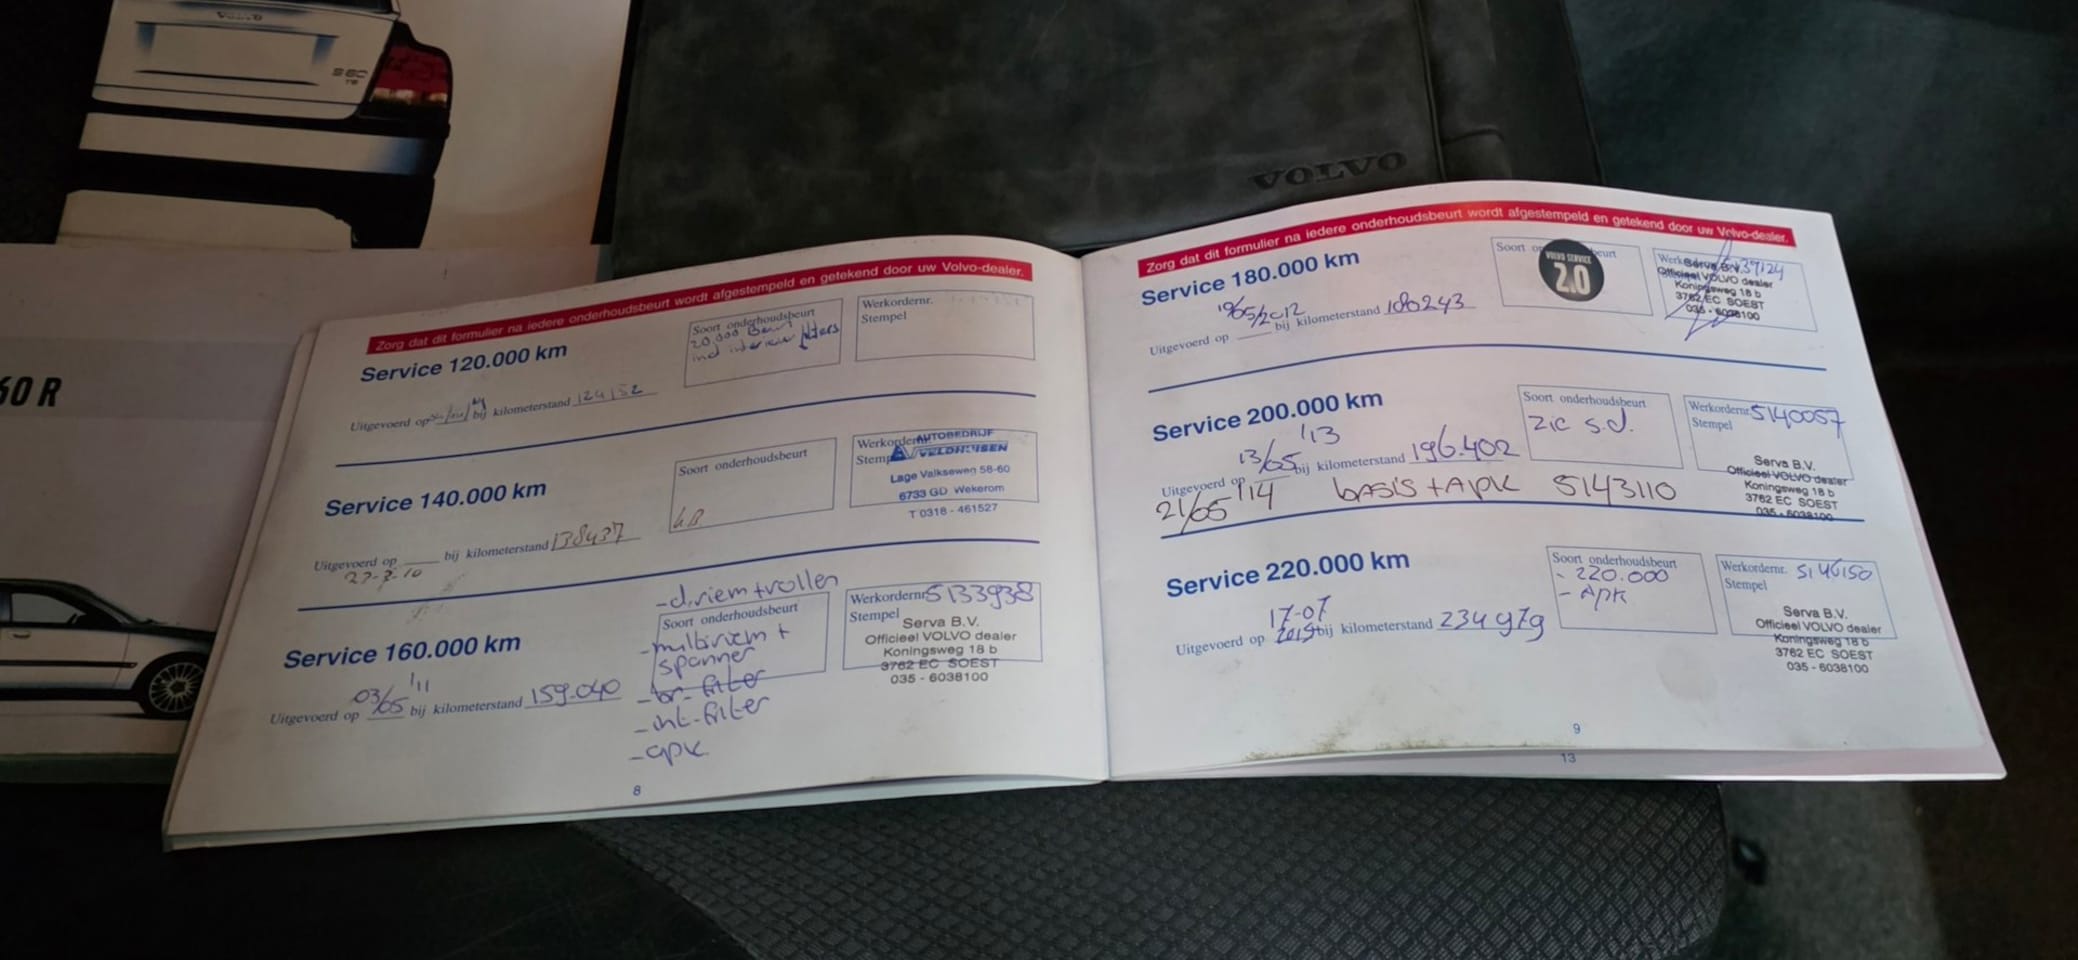 VOLVO
S60
60 R
VOLVO
Zorg dat dit formulier na iedere onderhoudsbeurt wordt afgestempeld en getekend door uw Volvo-dealer.
Service 120.000 km
Soort onderhoudsbeurt
20.000 Beurt
incl interieur filters
Werkordernr.
Stempel
Uitgevoerd op bij kilometerstand 124152
Service 140.000 km
Soort onderhoudsbeurt
Werkordernr.
Stempel
AUTOBEDRIJF
VELDHUISEN
Lage Valkseweg 58-60
6733 GD Wekerom
T 0318 - 461527
Uitgevoerd op bij kilometerstand 138437
27-3-10
Service 160.000 km
- d.riem + rollen
Soort onderhoudsbeurt
- multiriem +
spanner
- br-filter
- int-filter
- apk
Werkordernr. 5133938
Stempel
Serva B.V.
Officieel VOLVO dealer
Koningsweg 18 b
3762 EC SOEST
035 - 6038100
03/05 '11
Uitgevoerd op bij kilometerstand 159.040
8
Zorg dat dit formulier na iedere onderhoudsbeurt wordt afgestempeld en getekend door uw Volvo-dealer.
Service 180.000 km
Soort onderhoudsbeurt
VOLVO SERVICE
2.0
Serva B.V.
Officieel VOLVO dealer
Koningsweg 18 b
3762 EC SOEST
035 - 6038100
Uitgevoerd op bij kilometerstand 180243
Service 200.000 km
Soort onderhoudsbeurt
zie s.d.
Werkordernr. 5140057
Stempel
Serva B.V.
Officieel VOLVO dealer
Koningsweg 18 b
3762 EC SOEST
035 - 6038100
13/05 '13
Uitgevoerd op bij kilometerstand 196.402
21/05 '14 BASIS + APK 5143110
Service 220.000 km
Soort onderhoudsbeurt
- 220.000
- APK
Werkordernr. 5146150
Stempel
Serva B.V.
Officieel VOLVO dealer
Koningsweg 18 b
3762 EC SOEST
035 - 6038100
17-07
Uitgevoerd op bij kilometerstand 234979
9
13